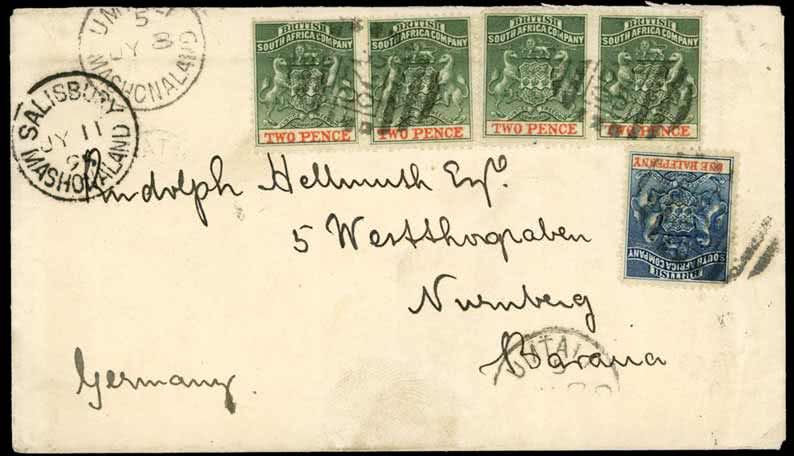 5
JY 8
MASHONALAND
SALISBURY
JY 11
93
MASHONALAND
BRITISH
SOUTH AFRICA COMPANY
TWO PENCE
BRITISH
SOUTH AFRICA COMPANY
TWO PENCE
BRITISH
SOUTH AFRICA COMPANY
TWO PENCE
BRITISH
SOUTH AFRICA COMPANY
TWO PENCE
ONE HALFPENNY
BRITISH
SOUTH AFRICA COMPANY
Rudolph Hellmuth Esq.
5 Westthorgraben
Nurnberg
Bavaria
Germany.